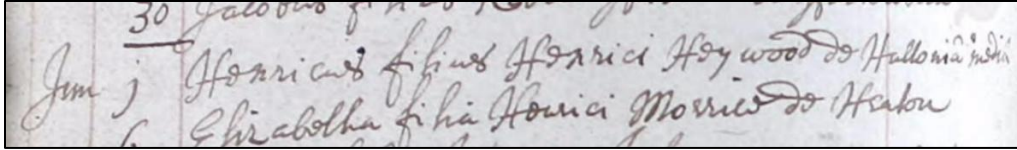 30 Jacobus filius
Juni j Henricus filius Henrici Heywood de Hultonia media
6 Elizabetha filia Henrici Morrice de Heaton